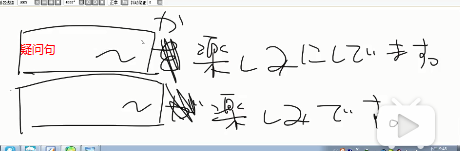 疑问句 ～か楽しみにしています。
～ 楽しみです。